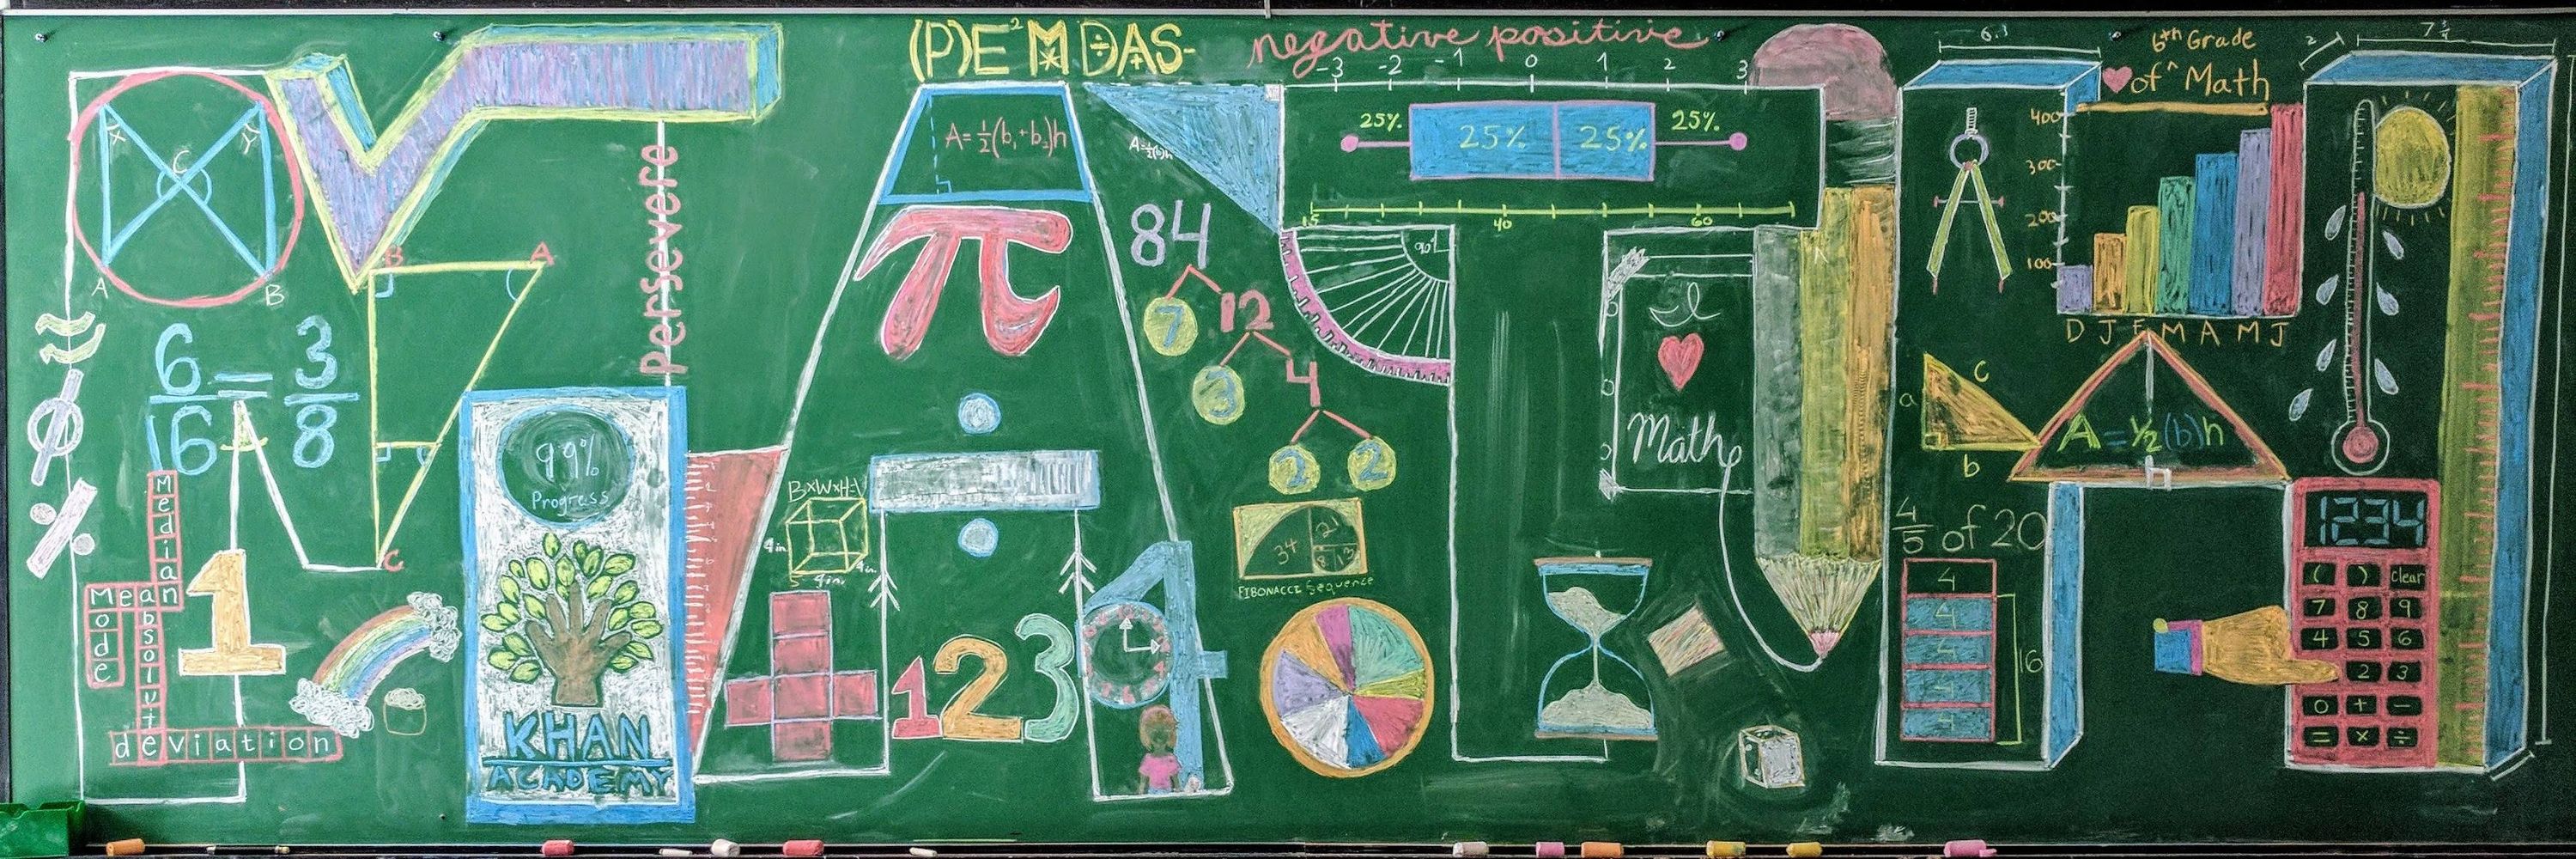 (P)E²MDAS-
negative positive
-3 -2 -1 0 1 2 3
6th Grade
♥ of ^ Math
2
7 3/4
X Y
C
A B
B A
C
persevere
A=½(b₁+b₂)h
25% 25% 25% 25%
15 40 60
90°
84
7 12
3 4
2 2
400
300
200
100
D J F M A M J
π
I
♥
Math
≈
6/16 = 3/8
%
99%
Progress
KHAN
ACADEMY
÷
4in. 4in. 4in.
34 21
8 13
FIBONACCI Sequence
a c
b
A=½(b)h
b
4/5 of 20
4
4
4
4
4
16
Median
Mean
Mode
absolute
deviation
1
1 2 3
4
1234
( ) Clear
7 8 9
4 5 6
2 3
0 + -
= × ÷